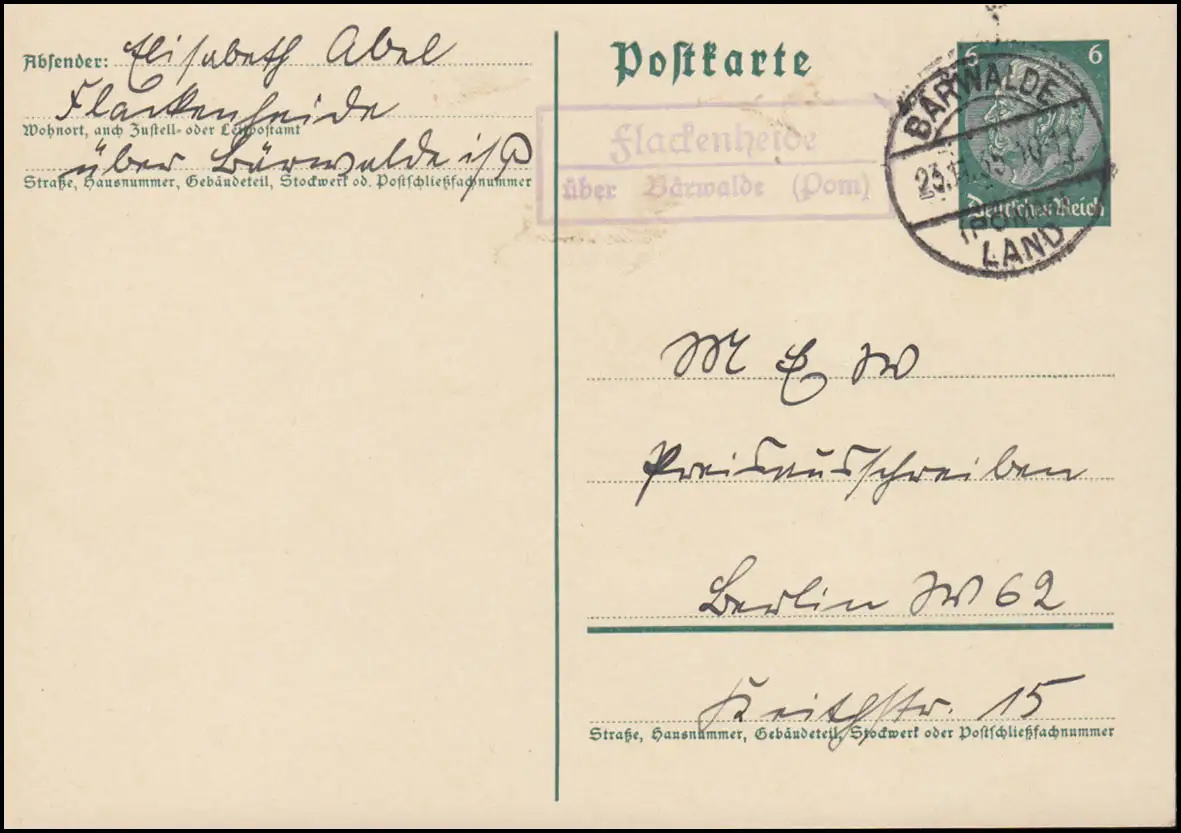 Absender: Elisabeth Abel
Flackenheide
Wohnort, auch Zustell- oder Leitpostamt
über Bärwalde i/P
Straße, Hausnummer, Gebäudeteil, Stockwerk od. Postschließfachnummer
Postkarte
Flackenheide
über Bärwalde (Pom)
6 6
Deutsches Reich
BÄRWALDE
(POMM)
LAND
M E W
Preisausschreiben
Berlin W 62
Keithstr. 15
Straße, Hausnummer, Gebäudeteil, Stockwerk oder Postschließfachnummer